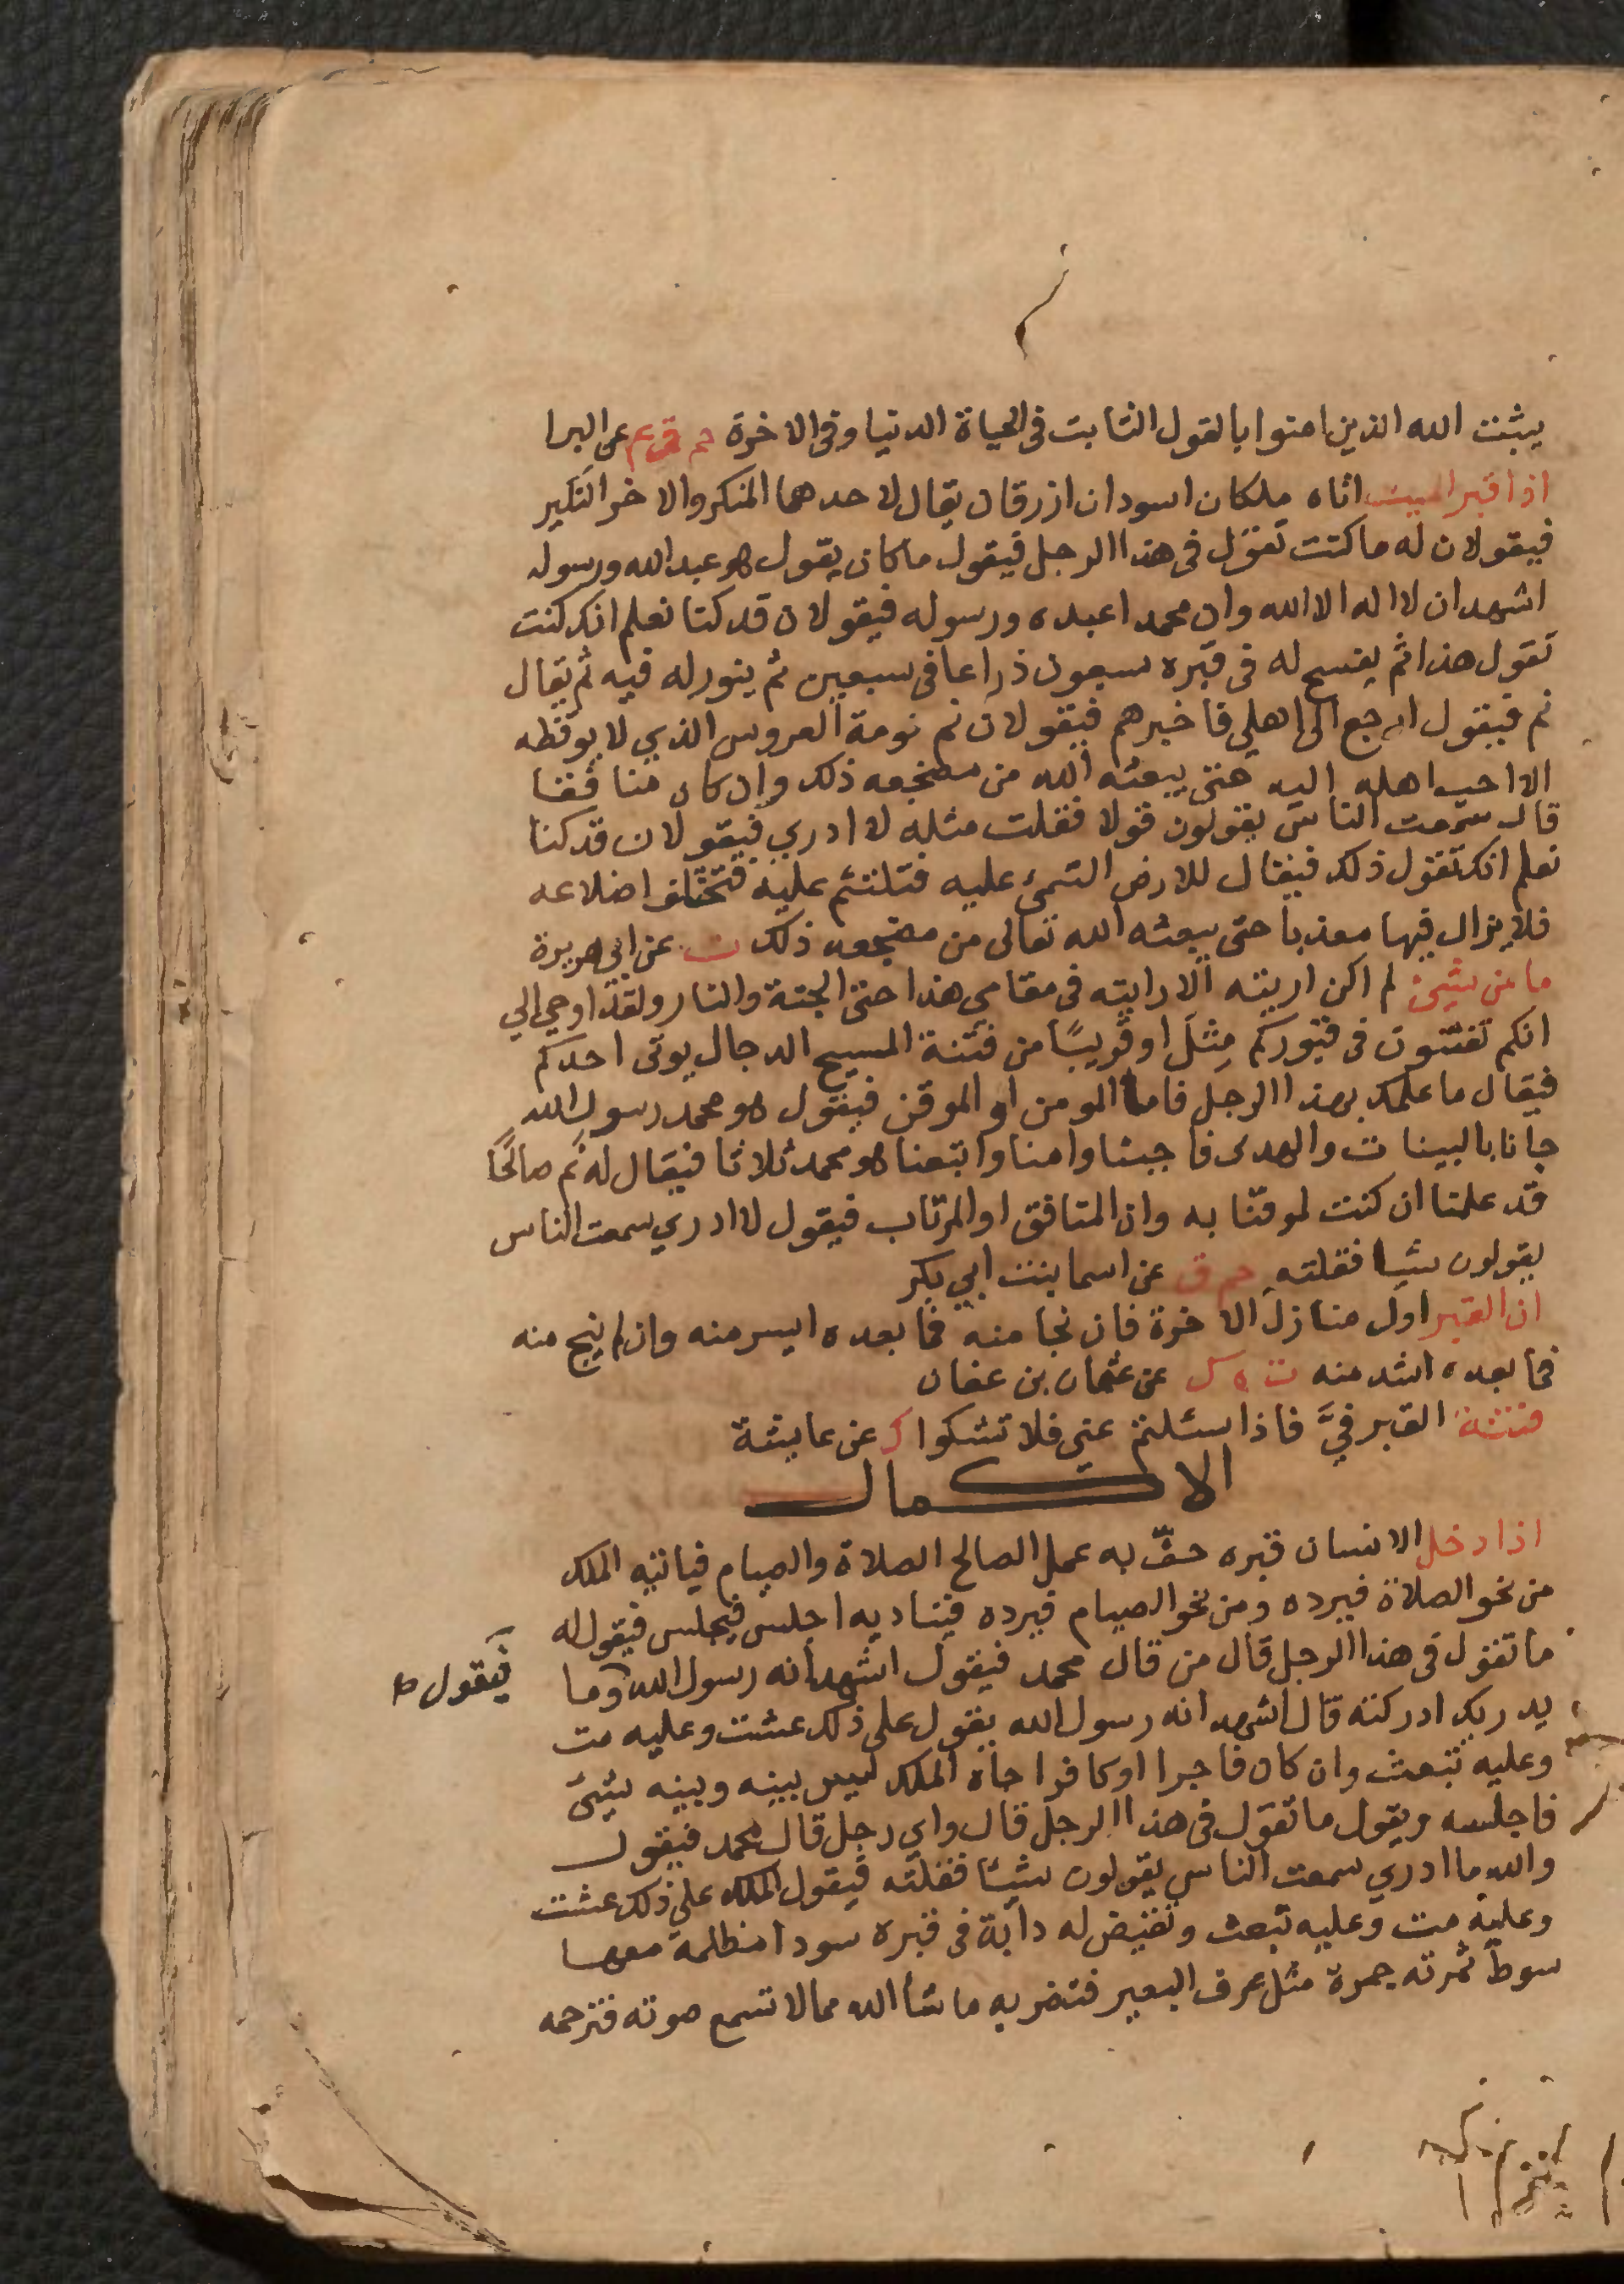 يثبت الله الذين امنوا بالقول الثابت في الحياة الدنيا وفي الاخرة حم ق ع عن البرا
اذا قبر الميت اتاه ملكان اسودان ازرقان يقال لاحدهما المنكر والاخر النكير
فيقولان له ما كنت تقول في هذا الرجل فيقول ما كان يقول هو عبد الله ورسوله
اشهد ان لا اله الا الله وان محمدا عبده ورسوله فيقولان قد كنا نعلم انك كنت
تقول هذا ثم يفسح له في قبره سبعون ذراعا في سبعين ثم ينور له فيه ثم يقال
نم فيقول ارجع الى اهلي فاخبرهم فيقولان نم نومة العروس الذي لا يوقظه
الا احب اهله اليه حتى يبعثه الله من مضجعه ذلك وان كان منافقا
قال سمعت الناس يقولون قولا فقلت مثله لا ادري فيقولان قد كنا
نعلم انك تقول ذلك فيقال للارض التئمي عليه فتلتئم عليه فتختلف اضلاعه
فلا يزال فيها معذبا حتى يبعثه الله تعالى من مضجعه ذلك ت عن ابي هريرة
ما من شيئ لم اكن اريته الا رايته في مقامي هذا حتى الجنة والنار ولقد اوحي الي
انكم تفتنون في قبوركم مثلَ او قريبًا من فتنة المسيح الدجال يوتى احدكم
فيقال ما علمك بهذا الرجل فاما المومن او الموقن فيقول هو محمد رسول الله
جانا بالبينات والهدى فاجبنا وامنا واتبعنا هو محمد ثلاثا فيقال له نم صالحًا
قد علمنا ان كنت لموقنا به وان المنافق او المرتاب فيقول لا ادري سمعت الناس
يقولون شيا فقلته حم ق عن اسما بنت ابي بكر
ان القبر اول منازل الاخرة فان نجا منه فما بعده ايسر منه وان لم ينج منه
فما بعده اشد منه ت ه ك عن عثمان بن عفان
فتنة القبر فيَّ فاذا سئلتم عني فلا تشكوا ك عن عايشة
الاكمال
اذا دخل الانسان قبره حفّ به عمل الصالح الصلاة والصيام فياتيه الملك
من نحو الصلاة فيرده ومن نحو الصيام فيرده فيناديه اجلس فيجلس فيقول له
ما تقول في هذا الرجل قال من قال محمد فيقول اشهد انه رسول الله وما
فيقول
يدريك ادركته قال اشهد انه رسول الله يقول على ذلك عشت وعليه مت
وعليه تبعث وان كان فاجرا او كافرا جاه الملك ليس بينه وبينه شيئ
فاجلسه ويقول ما تقول في هذا الرجل قال واي رجل قال محمد فيقول
والله ما ادري سمعت الناس يقولون شيئا فقلته فيقول الملك على ذلك عشت
وعليه مت وعليه تبعث وتقيض له دابة في قبره سودا مظلمة معها
سوط ثمرته جمرة مثل عرف البعير فتضربه ما شا الله مما لا تسمع صوته فترحمه